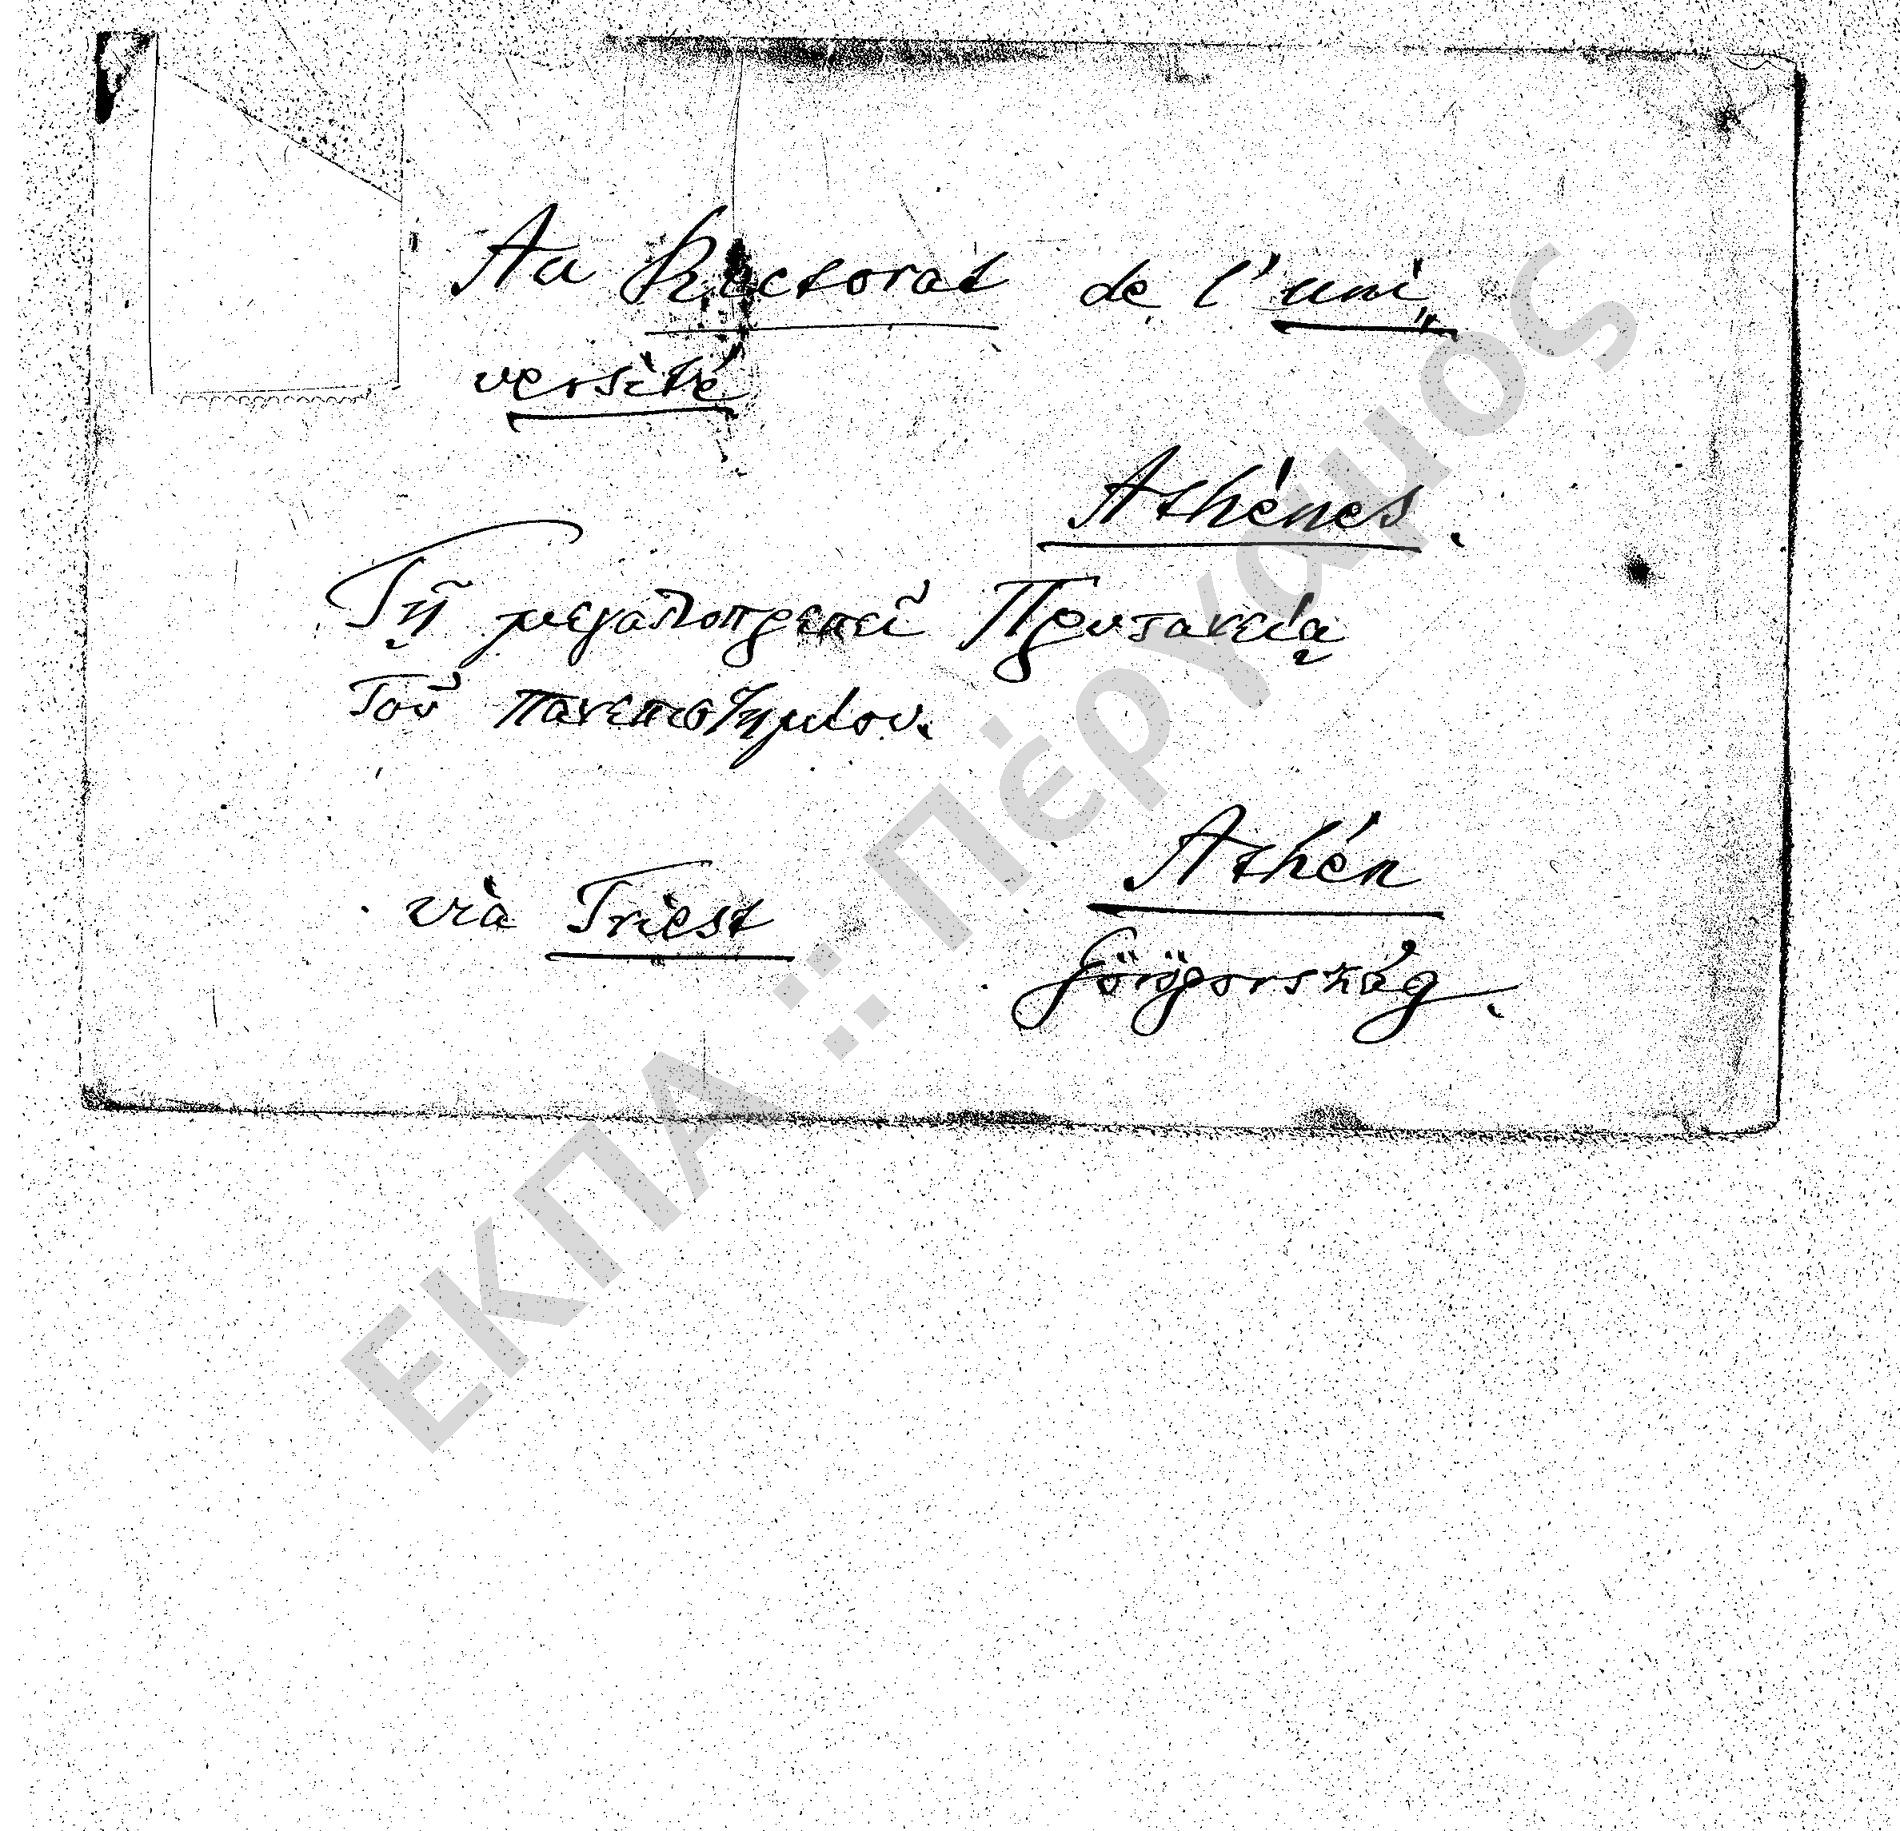 Au Rectorat de l'uni„
versité
Athènes.
Τῇ μεγαλοπρεπεῖ Πρυτανείᾳ
τοῦ πανεπιστημίου.
Athén
vià Triest
Görögország.
ΕΚΠΑ :: Πέργαμος